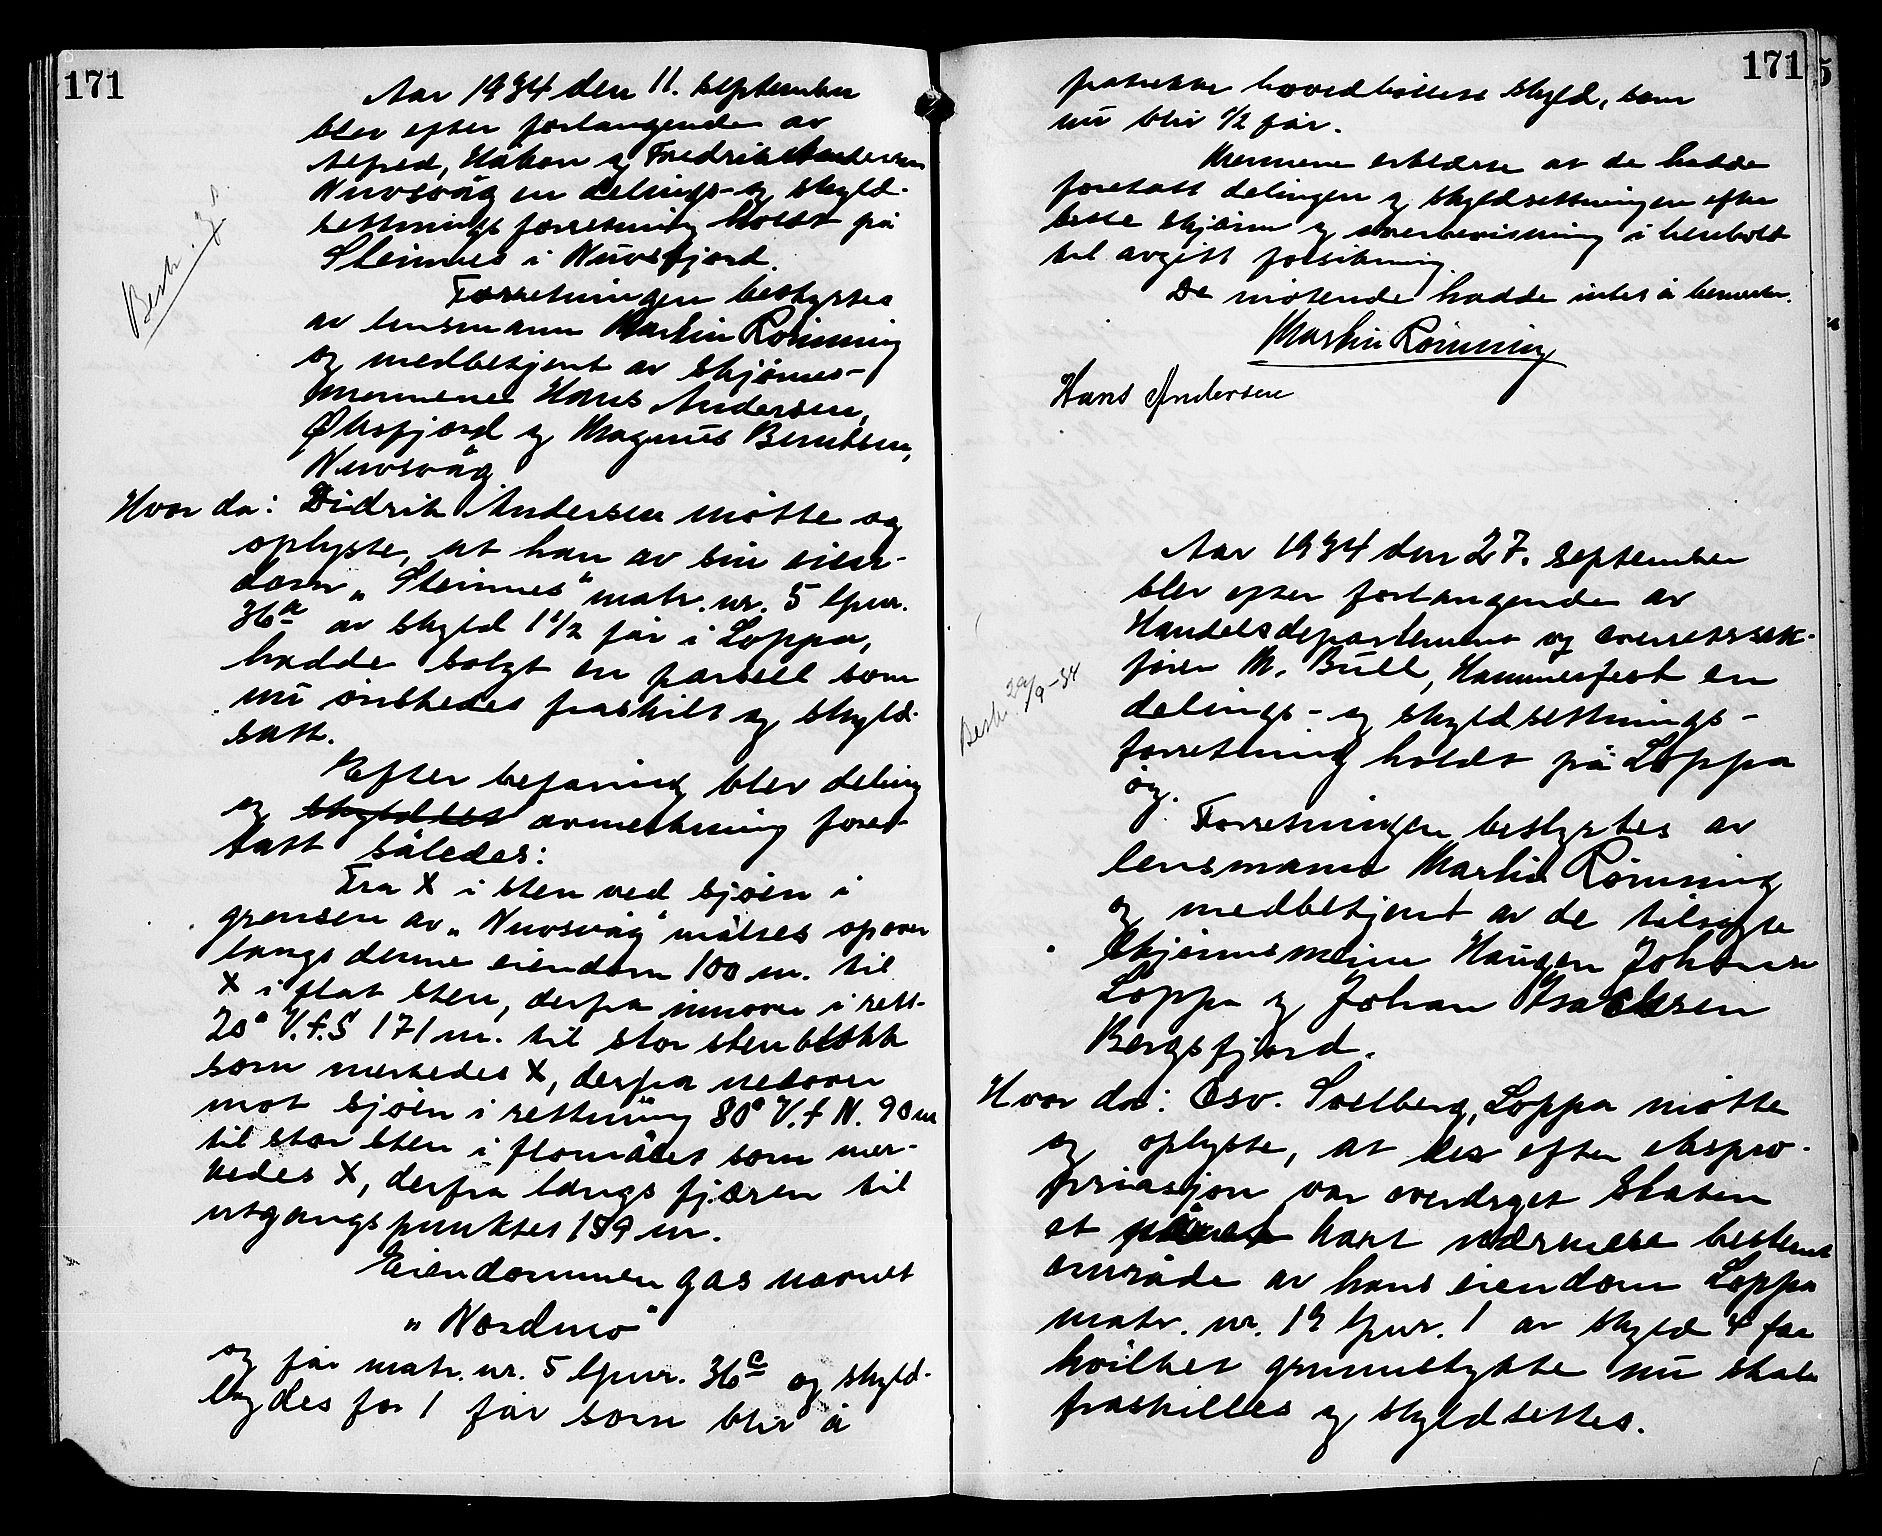 171
Aar 1934 den 11. september
blev efter forlangende av
Alfred, Håkon og Fredrik Andersen
Nuvsvåg en delings- og skyld-
settningsforretning holdt på
Steinnes i Nuvsfjord.
Forretningen bestyrtes
av lensmann Martin Rönning
og medbetjent av skjönns-
mennene Hans Andersen,
Øksfjord og Magnus Berntsen,
Nuvsvåg
Hvor da: Didrik Andersen mötte og
oplyste, at han av sin eien-
dom „Steinnes" matr. nr. 5 lpnr.
36a av skyld 1 1/2 får i Loppa,
hadde solgt en parsell som
nu önskedes fraskilt og skyld-
satt.
Efter befaring blev deling
og avmerkning fore-
tatt således:
Fra X i sten ved sjöen i
grensen av „Nuvsvåg" måltes opover
langs denne eiendom 100 m. til
X i flat sten, derfra innover i rett.
20° V.f.S 171 m. til stor stenblokk
som merkedes X, derfra nedover
mot sjöen i rettning 80° V.f N. 90 m
til stor sten i flomålet som mer-
kedes X, derfra langs fjæren til
utgangspunktet 159 m.
Eiendommen gas navnet
„Nordmo"
og får matr. nr. 5 lpnr. 36c og skyld-
legdes for 1 får som blir å
171
fratrekke hovedbölets skyld, som
nu blir 1/2 får.
Mennene erklærte at de hadde
foretatt delingen og skyldsettningen efter
beste skjönn og overbevisning i henhold
til avgitt forsikring.
De mötende hadde intet å bemerke.
Martin Rönning
Hans Andersen
Aar 1934 den 27. september
blev efter forlangende av
Handelsdepartement og overrettssak-
förer M. Bull, Hammerfest en
delings- og skyldsettnings-
forretning holdt på Loppa
öy.
Forretningen bestyrtes av
lensmann Martin Rönning
og medbetjent av de tilsagte
skjönnsmenn Haugen Johansen
Loppa og Johan Isaksen
Bergsfjord.
Bestr. 29/9-34
Hvor da: Osv. Solberg, Loppa mötte
og oplyste, at det efter ekspro-
priasjon var overdraget Staten
et kart nærmere bestemt
område av hans eiendom Loppa
matr. nr. 19 lpnr. 1 av skyld 4 får
hvilket grunnstykke nu skal
fraskilles og skyldsettes.